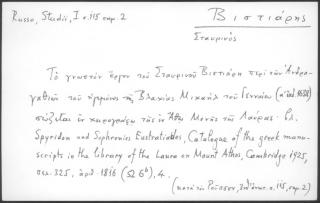 Russo, Studii, I σ. 115 σημ. 2
Βιστιάρης
Σταυρινός
Τὸ γνωστὸν ἔργον τοῦ Σταυρινοῦ Βιστιάρη περὶ τῶν Ἀνδρα-
γαθιῶν τοῦ ἡγεμόνος τῆς Βλαχίας Μιχαὴλ τοῦ Γενναίου (α' ἐκδ. 1638)
σῴζεται ἐν χειρογράφῳ τῆς ἐν Ἄθῳ Μονῆς τῆς Λαύρας· βλ.
Spyridon and Sophronios Eustratiades, Catalogue of the greek manu-
scripts in the library of the Laura on Mount Athos, Cambridge 1925,
σελ. 325, ἀρ. 1816 (Ω 6), 4.
(κατὰ τὸν Ροῦσσον, σ. 115, σημ. 2)